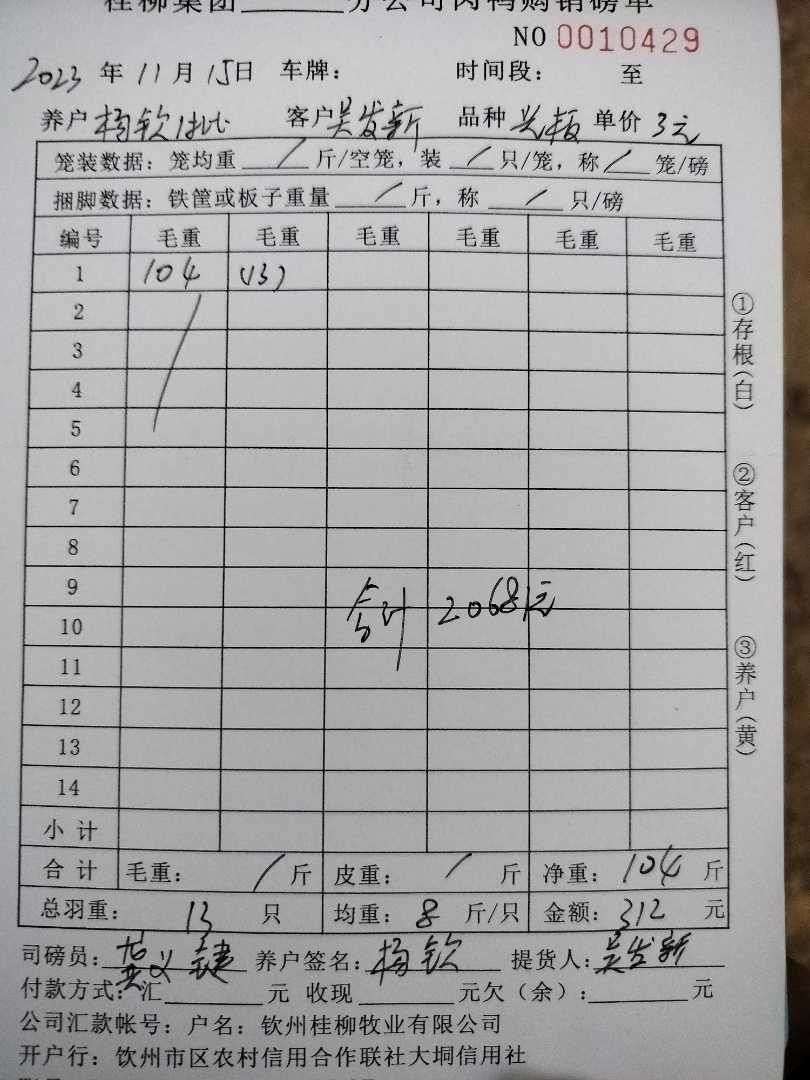 桂柳集团______分公司肉鸭购销磅单
NO 0010429
2023 年 11 月 15 日 车牌： 时间段： 至
养户 杨钦 1批 客户 吴发新 品种 单价 3元
笼装数据：笼均重 / 斤/空笼，装 / 只/笼，称 / 笼/磅
捆脚数据：铁筐或板子重量 / 斤，称 / 只/磅
编号 毛重 毛重 毛重 毛重 毛重 毛重
1 104 (13)
2
3
4
5
6
7
8
9
合计 2068元
10
11
12
13
14
小计
合计 毛重： / 斤 皮重： / 斤 净重： 104 斤
总羽重： 13 只 均重： 8 斤/只 金额： 312 元
司磅员： 黄义键 养户签名： 杨钦 提货人： 吴发新
付款方式：汇______元 收现______元欠（余）：______元
公司汇款帐号：户名：钦州桂柳牧业有限公司
开户行：饮州市区农村信用合作联社大垌信用社
①存根（白）
②客户（红）
③养户（黄）